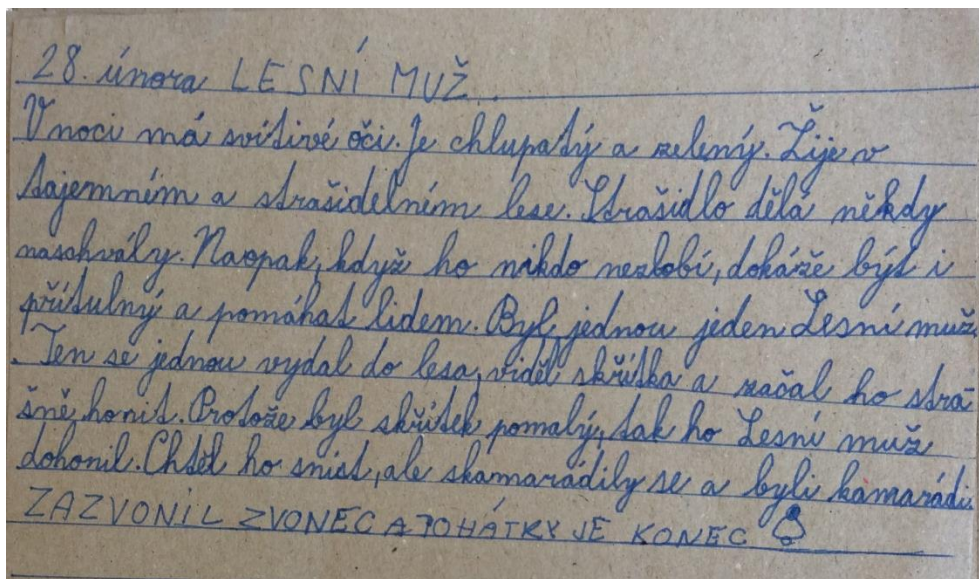 28. února LESNÍ MUŽ
V noci má svítivé oči. Je chlupatý a zelený. Žije v
tajemném a strašidelném lese. Strašidlo dělá někdy
naschvály. Naopak, když ho nikdo nezlobí, dokáže být i
přítulný a pomáhat lidem. Byl jednou jeden Lesní muž
. Ten se jednou vydal do lesa, viděl skřítka a začal ho stra-
šně honit. Protože byl skřítek pomalý, tak ho Lesní muž
dohonil. Chtěl ho sníst, ale skamarádily se a byli kamarádi.
ZAZVONIL ZVONEC A POHÁTKY JE KONEC